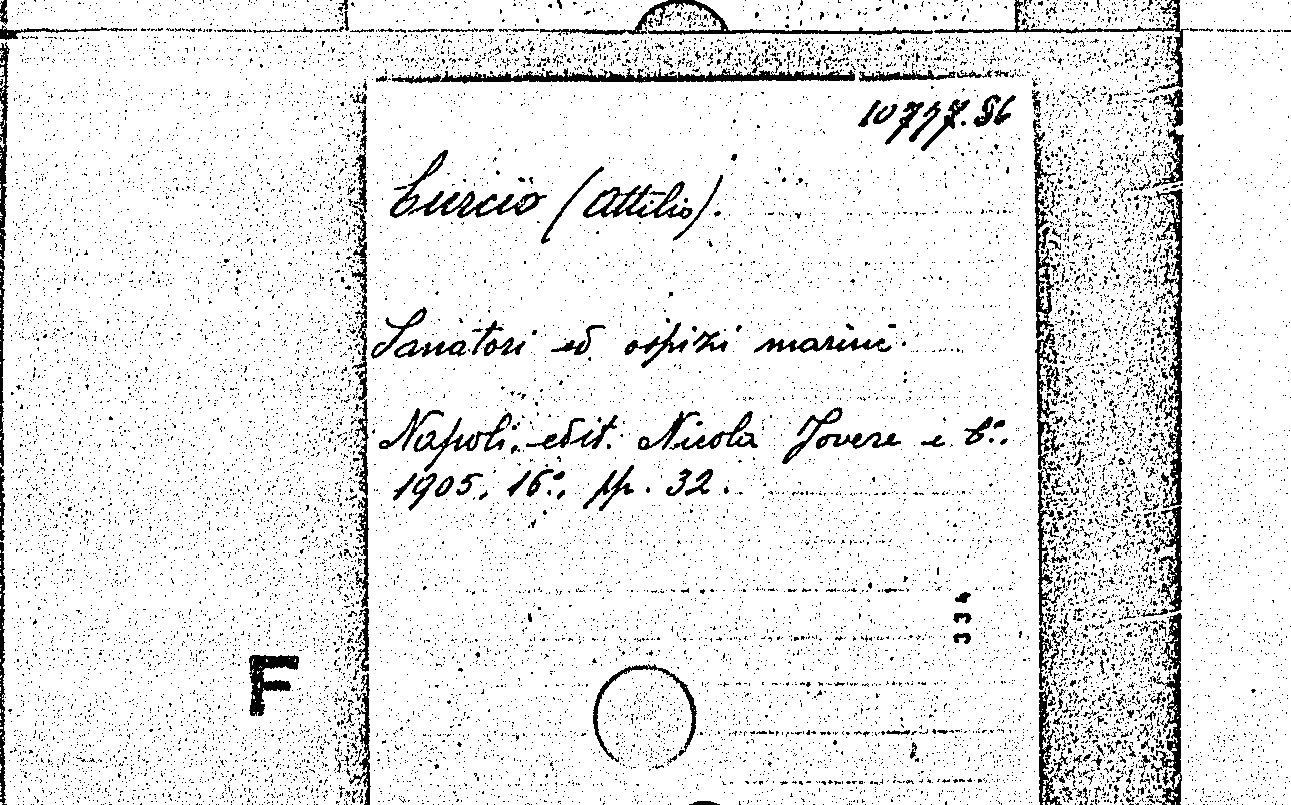 10777.56
Curcio (Attilio).
Sanatori ed ospizi marini.
Napoli, edit. Nicola Jovere e C.º.
1905. 16.º, pp. 32.
334
F